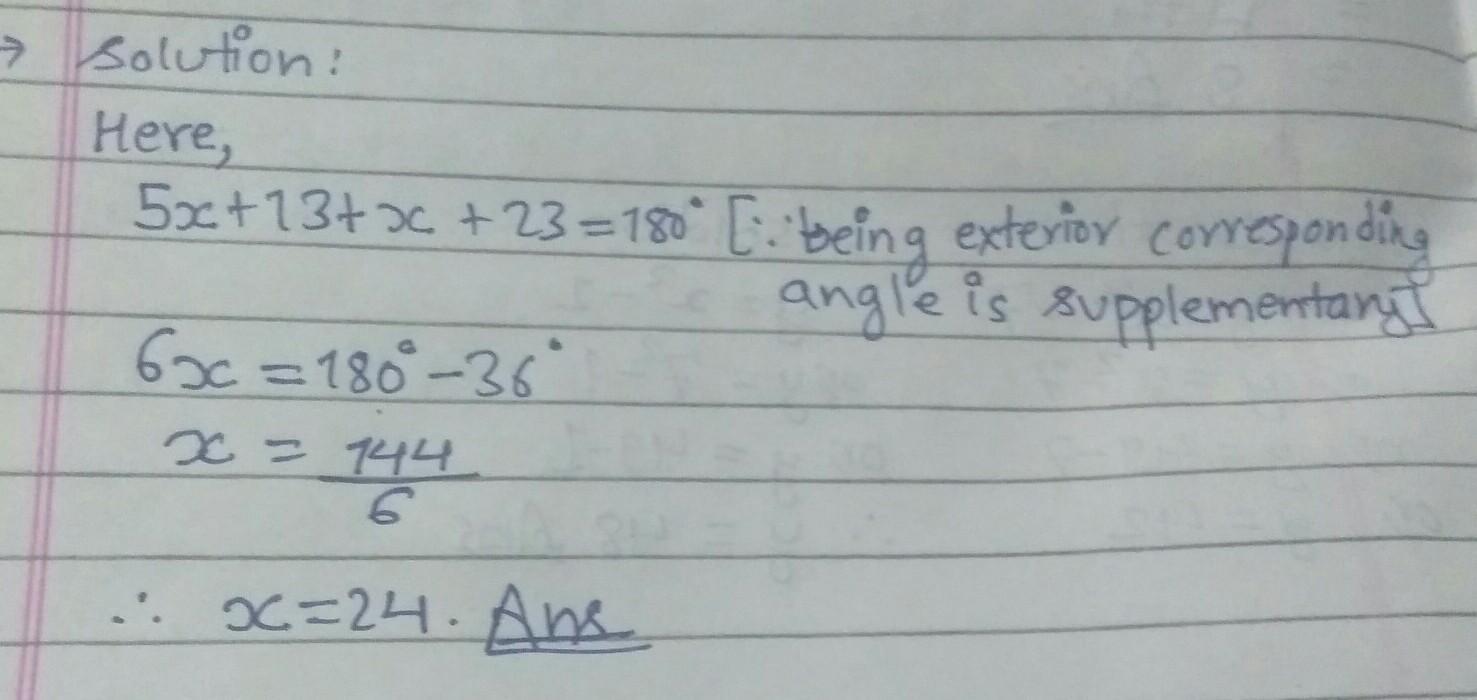 → Solution:
Here,
5x+13+x+23=180° [∵being exterior corresponding
angle is supplementary]
6x=180°-36°
x = 144
6
∴ x=24. Ans